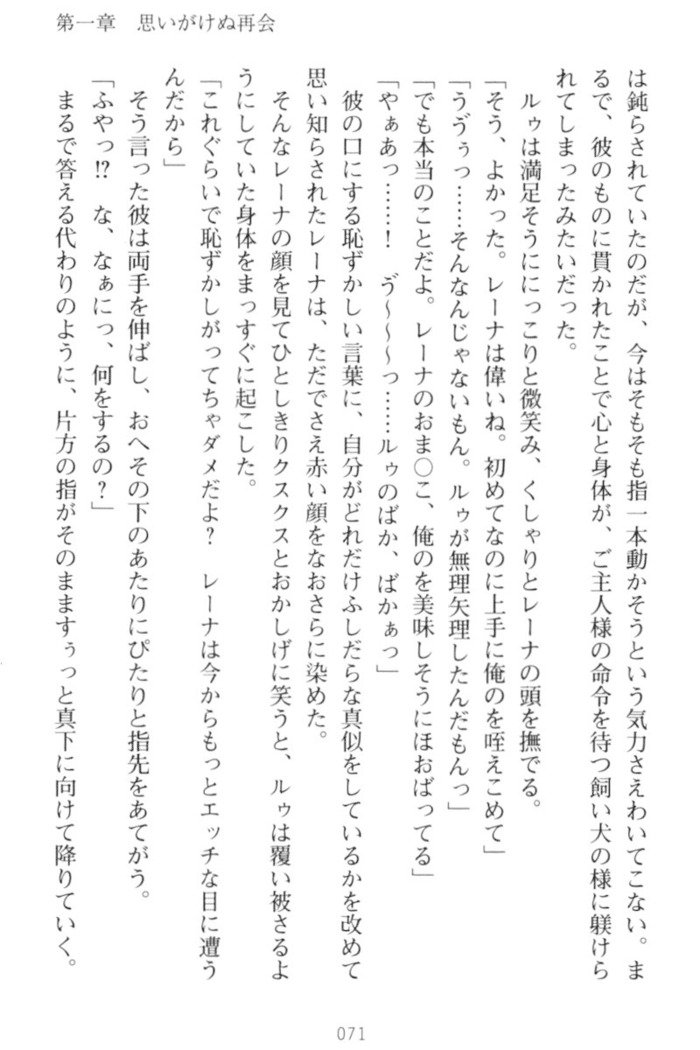 第一章　思いがけぬ再会
は鈍らされていたのだが、今はそもそも指一本動かそうという気力さえわいてこない。ま
るで、彼のものに貫かれたことで心と身体が、ご主人様の命令を待つ飼い犬の様に躾けら
れてしまったみたいだった。
　ルゥは満足そうににっこりと微笑み、くしゃりとレーナの頭を撫でる。
「そう、よかった。レーナは偉いね。初めてなのに上手に俺のを咥えこめて」
「うゔぅっ……そんなんじゃないもん。ルゥが無理矢理したんだもんっ」
「でも本当のことだよ。レーナのおま〇こ、俺のを美味しそうにほおばってる」
「やぁあっ……！　ゔ〜〜〜っ……ルゥのばか、ばかぁっ」
　彼の口にする恥ずかしい言葉に、自分がどれだけふしだらな真似をしているかを改めて
思い知らされたレーナは、ただでさえ赤い顔をなおさらに染めた。
　そんなレーナの顔を見てひとしきりクスクスとおかしげに笑うと、ルゥは覆い被さるよ
うにしていた身体をまっすぐに起こした。
「これぐらいで恥ずかしがってちゃダメだよ？　レーナは今からもっとエッチな目に遭う
んだから」
　そう言った彼は両手を伸ばし、おへその下のあたりにぴたりと指先をあてがう。
「ふやっ!?　な、なぁにっ、何をするの？」
　まるで答える代わりのように、片方の指がそのまますぅっと真下に向けて降りていく。
071